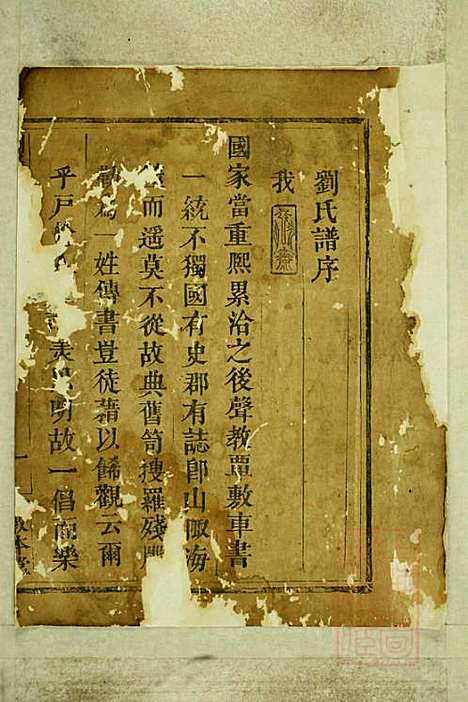 劉氏譜序
我
國家當重熙累洽之後聲教覃敷車書
一統不獨國有史郡有誌卽山陬海
而遥莫不從故典舊笥搜羅殘
為一姓傳書豈徒藉以餙觀云爾
乎戶
明故一倡而樂